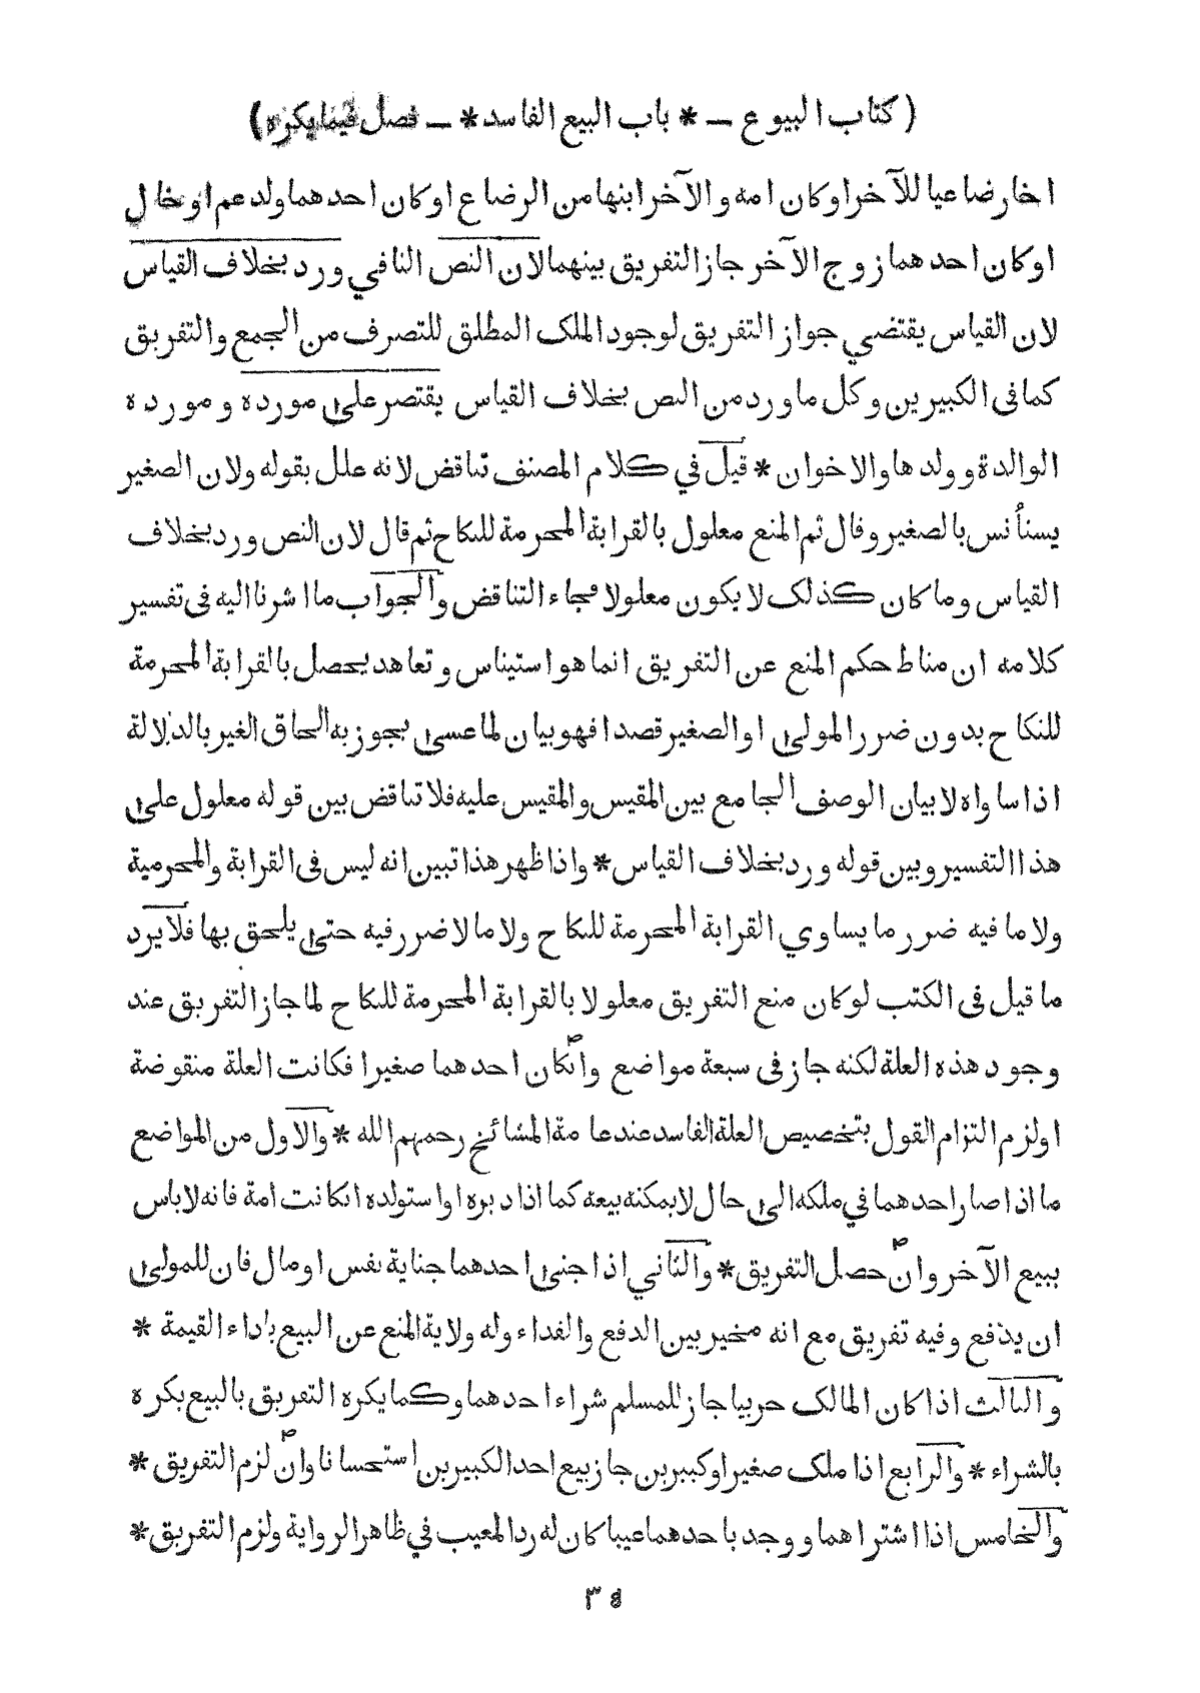 ( كتاب البيوع — * باب البيع الفاسد * — فصل فيما يكره )
اخا رضاعيا للآخر او كان امه والآخر ابنها من الرضاع او كان احدهما ولد عم او خال
او كان احدهما زوج الآخر جاز التفريق بينهما لان النص النافي ورد بخلاف القياس
لان القياس يقتضي جواز التفريق لوجود الملك المطلق للتصرف من الجمع والتفريق
كما فى الكبيرين وكل ما ورد من النص بخلاف القياس يقتصر على مورده ومورده
الوالدة وولدها والاخوان * قيل في كلام المصنف تناقض لانه علل بقوله ولان الصغير
يستأنس بالصغير وقال ثم المنع معلول بالقرابة المحرمة للنكاح ثم قال لان النص ورد بخلاف
القياس وما كان كذلك لا يكون معلولا فجاء التناقض والجواب ما اشرنا اليه فى تفسير
كلامه ان مناط حكم المنع عن التفريق انما هو استيناس وتعاهد يحصل بالقرابة المحرمة
للنكاح بدون ضرر المولى او الصغير قصدا فهو بيان لما عسى يجوز به الحاق الغير بالدلالة
اذا ساواه لا بيان الوصف الجامع بين المقيس والمقيس عليه فلا تناقض بين قوله معلول على
هذا التفسير وبين قوله ورد بخلاف القياس * واذا ظهر هذا تبين انه ليس فى القرابة والمحرمية
ولا ما فيه ضرر ما يساوي القرابة المحرمة للنكاح ولا ما لا ضرر فيه حتى يلحق بها فلا يرد
ما قيل فى الكتب لو كان منع التفريق معلولا بالقرابة المحرمة للنكاح لما جاز التفريق عند
وجود هذه العلة لكنه جاز فى سبعة مواضع وان كان احدهما صغيرا فكانت العلة منقوضة
او لزم التزام القول بتخصيص العلة الفاسد عند عامة المشائخ رحمهم الله * والاول من المواضع
ما اذا صار احدهما في ملكه الى حال لا يمكنه بيعه كما اذا دبره او استولده ان كانت امة فانه لا باس
ببيع الآخر وان حصل التفريق * والثاني اذا جنى احدهما جناية نفس او مال فان للمولى
ان يدفع وفيه تفريق مع انه مخير بين الدفع والفداء وله ولاية المنع عن البيع باداء القيمة *
والثالث اذا كان المالك حربيا جاز للمسلم شراء احدهما وكما يكره التفريق بالبيع يكره
بالشراء * والرابع اذا ملك صغيرا وكبيرين جاز بيع احد الكبيرين استحسانا وان لزم التفريق *
والخامس اذا اشتراهما ووجد باحدهما عيبا كان له رد المعيب في ظاهر الرواية ولزم التفريق *